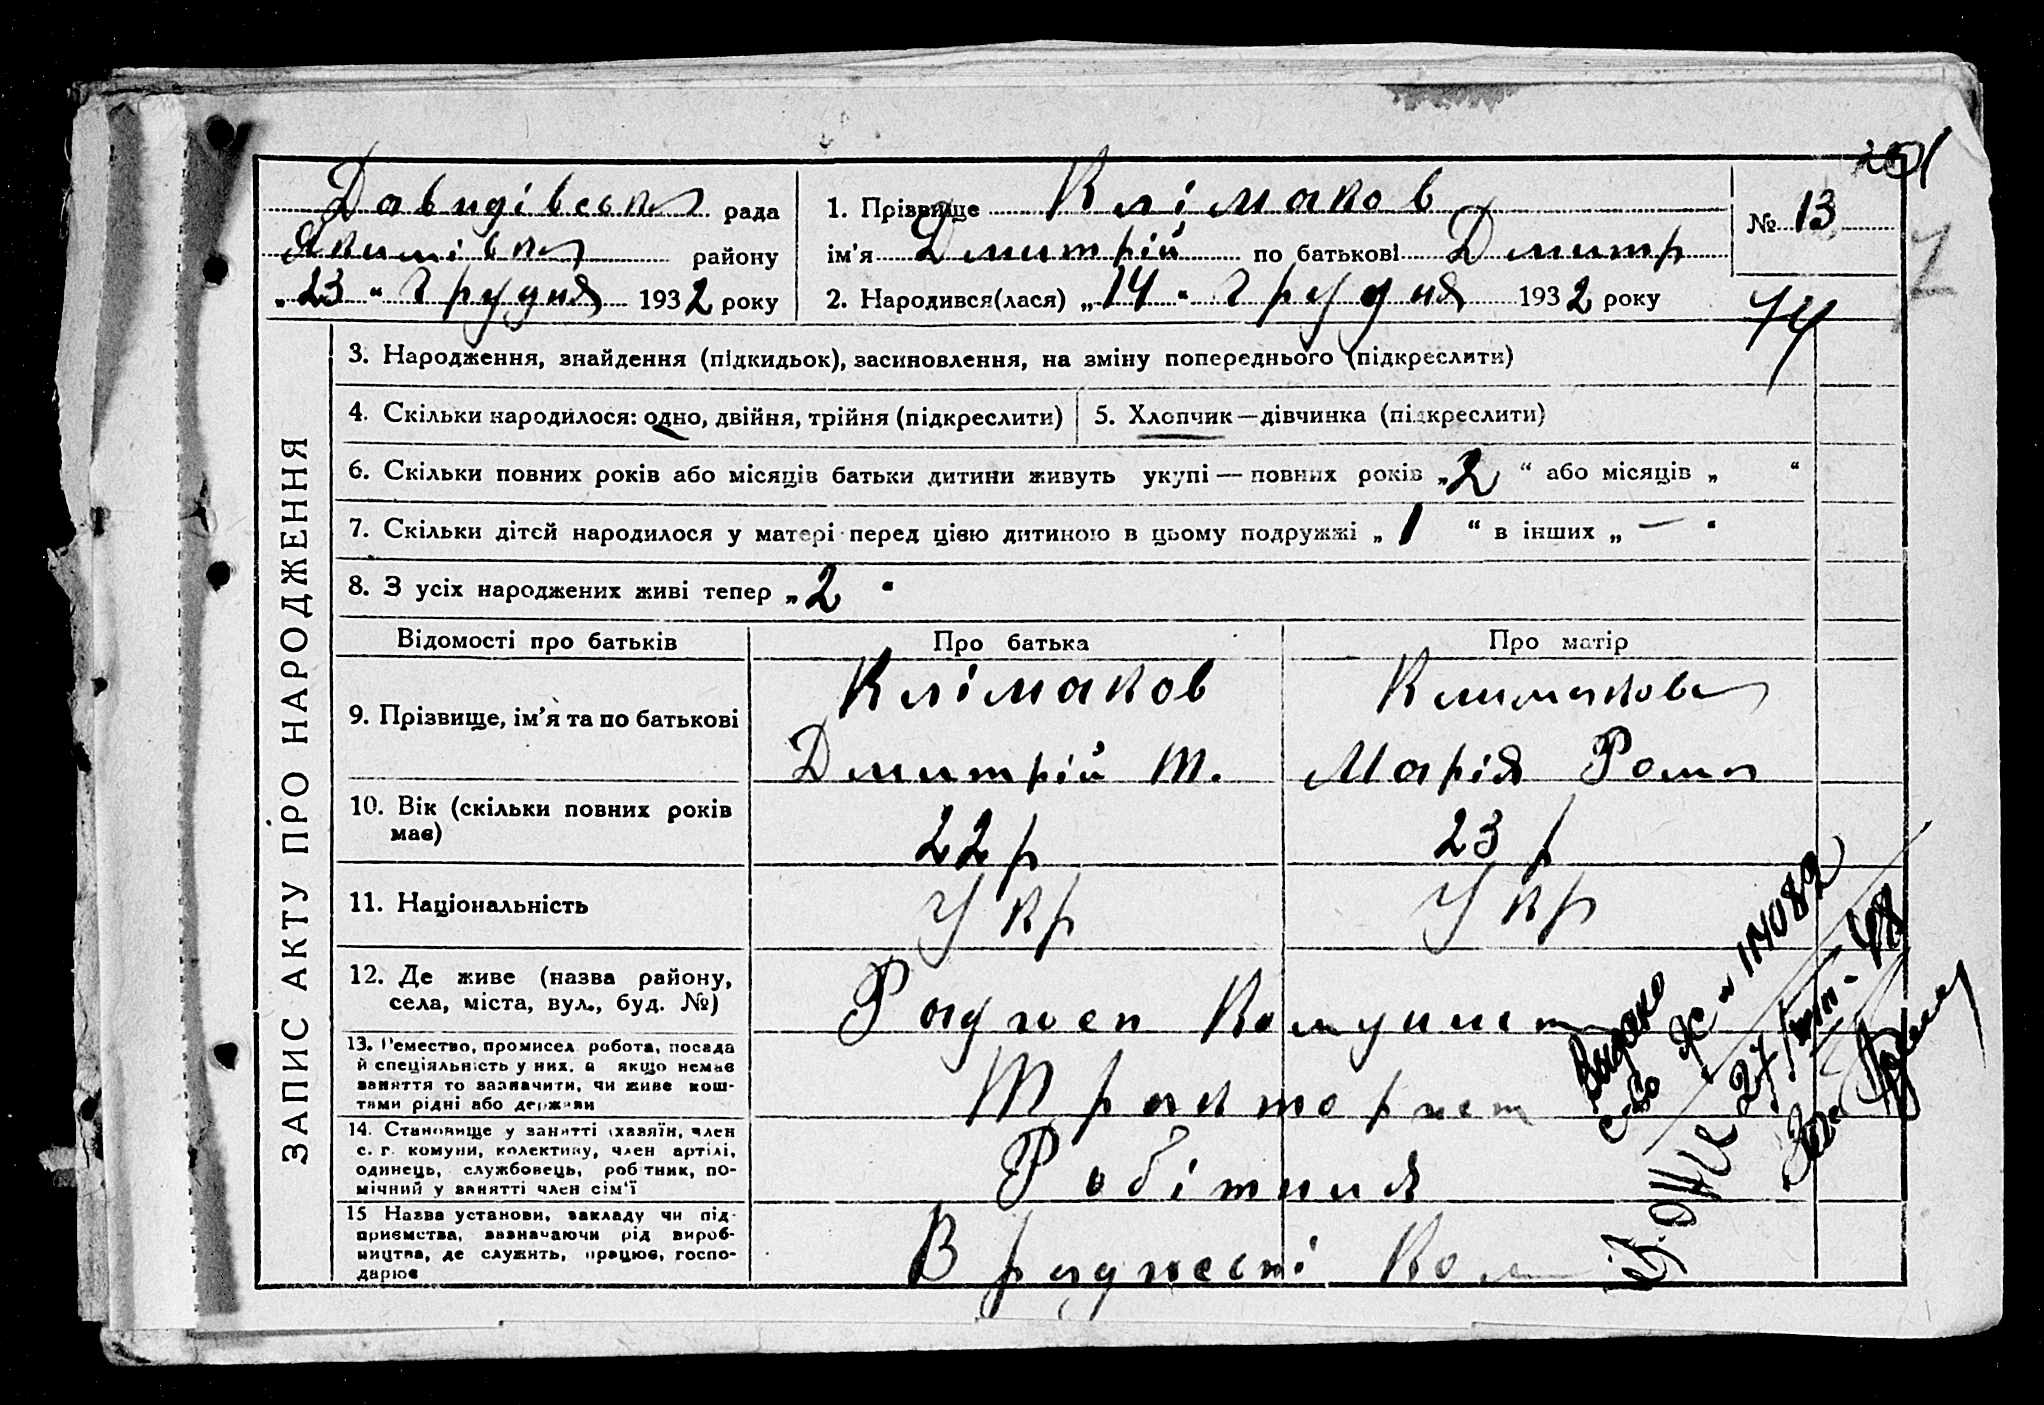 201
Давидівська рада
Якимівка району
„23“ Грудня 1932 року
1. Прізвище Клімаков
ім'я Дмитрій по батькові Дмитр
2. Народився(лася) „14“ Грудня 1932 року
№ 13
74
ЗАПИС АКТУ ПРО НАРОДЖЕННЯ
3. Народження, знайдення (підкидьок), засиновлення, на зміну попереднього (підкреслити)
4. Скільки народилося: одно, двійня, трійня (підкреслити)
5. Хлопчик—дівчинка (підкреслити)
6. Скільки повних років або місяців батьки дитини живуть укупі — повних років „2“ або місяців „ “
7. Скільки дітей народилося у матері перед цією дитиною в цьому подружжі „1“ в інших „—“
8. З усіх народжених живі тепер „2“
Відомості про батьків
Про батька
Про матір
9. Прізвище, ім'я та по батькові
Клімаков
Дмитрій Т.
Климакова
Марія Рома
10. Вік (скільки повних років
має)
22 р
23 р
11. Національність
Укр
Укр
12. Де живе (назва району,
села, міста, вул., буд. №)
Радгосп Комуніст
13. Ремество, промисел робота, посада
й спеціяльність у них, а якщо немає
заняття то зазначити, чи живе кош-
тами рідні або держави
Тракторист
14. Становище у занятті (хазяїн, член
с. г. комуни, колективу, член артілі,
одинець, службовець, робітник, по-
мічний у занятті член сім'ї
Робітниця
15 Назва установи, закладу чи під-
приємства, зазначаючи рід вироб-
ництва, де служить, працює, госпо-
дарює
В радгоспі Ком
Выдано
с-во 114082
27/VIII-48